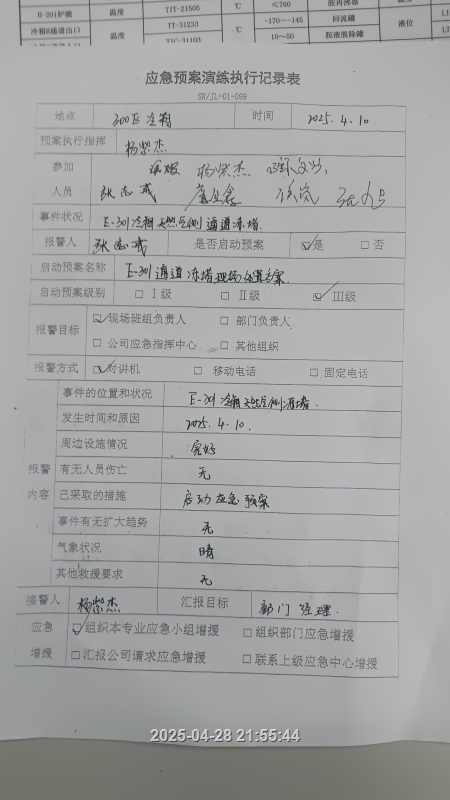 H-201炉膛 温度 TIT-21505 ℃ ≤760 胺再沸器
冷箱B通道出口 温度 TT-31233 ℃ -170~-145 回流罐 液位
TIC-31103 10~50 胺液脱除罐
应急预案演练执行记录表
SR/JL-01-099
地点 300区冷箱 时间 2025.4.10
预案执行指挥 杨荣杰
参加 杨荣杰.
人员 张志成
事件状况 E-301冷箱天然气侧通道冻堵.
报警人 张志成 是否启动预案 ☑是 □否
启动预案名称 E-301通道冻堵现场处置方案.
启动预案级别 □ Ⅰ级 □ Ⅱ级 ☑ Ⅲ级
报警目标 ☑现场班组负责人 □ 部门负责人
□ 公司应急指挥中心 □ 其他组织
报警方式 ☑对讲机 □ 移动电话 □ 固定电话
报警内容
事件的位置和状况 E-301冷箱天然气侧冻堵.
发生时间和原因 2025.4.10.
周边设施情况 完好
有无人员伤亡 无
已采取的措施 启动应急预案
事件有无扩大趋势 无
气象状况 晴
其他救援要求 无
接警人 杨荣杰 汇报目标 部门经理.
应急 ☑组织本专业应急小组增援 □组织部门应急增援
增援 □汇报公司请求应急增援 □联系上级应急中心增援
2025-04-28 21:55:44